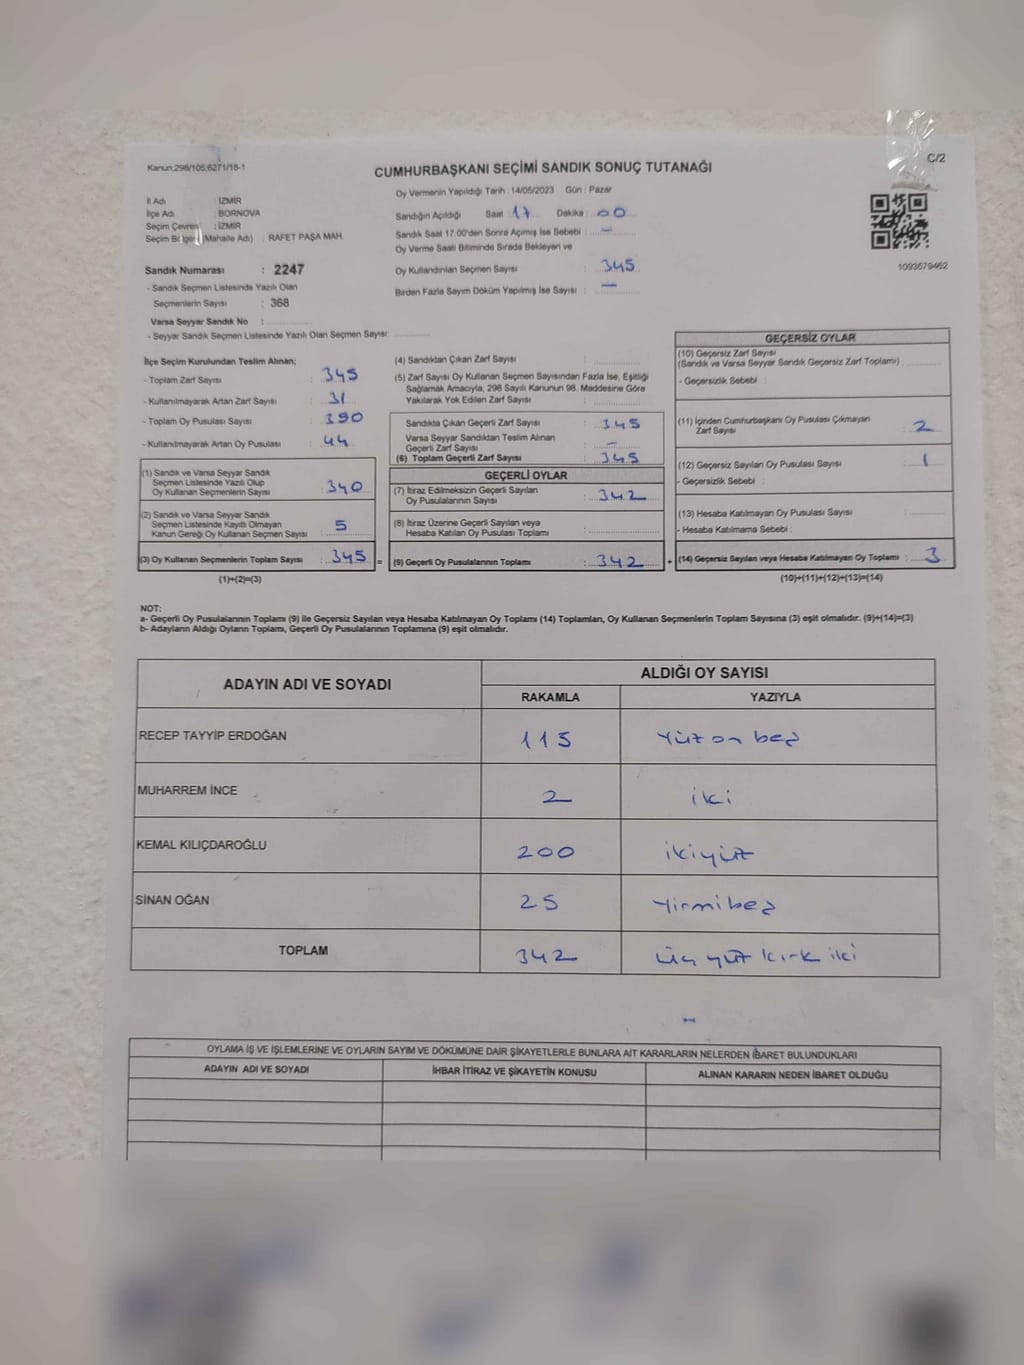 Kanun:298/105,6271/18-1
C/2
CUMHURBAŞKANI SEÇİMİ SANDIK SONUÇ TUTANAĞI
Oy Vermenin Yapıldığı Tarih : 14/05/2023 Gün : Pazar
İl Adı : İZMİR
İlçe Adı : BORNOVA
Seçim Çevresi : İZMİR
Seçim Bölgesi (Mahalle Adı) : RAFET PAŞA MAH.
Sandığın Açıldığı Saat : 17 Dakika : 00
Sandık Saat 17.00'den Sonra Açımış İse Sebebi : -
Oy Verme Saati Bitiminde Sırada Bekleyen ve
Oy Kullandırılan Seçmen Sayısı : 345
Birden Fazla Sayım Döküm Yapılmış İse Sayısı : -
1093579462
Sandık Numarası : 2247
- Sandık Seçmen Listesinde Yazılı Olan
Seçmenlerin Sayısı : 368
Varsa Seyyar Sandık No :
- Seyyar Sandık Seçmen Listesinde Yazılı Olan Seçmen Sayısı:
İlçe Seçim Kurulundan Teslim Alınan;
- Toplam Zarf Sayısı : 345
- Kullanılmayarak Artan Zarf Sayısı : 31
- Toplam Oy Pusulası Sayısı : 390
- Kullanılmayarak Artan Oy Pusulası : 44
(1) Sandık ve Varsa Seyyar Sandık
Seçmen Listesinde Yazılı Olup
Oy Kullanan Seçmenlerin Sayısı : 340
(2) Sandık ve Varsa Seyyar Sandık
Seçmen Listesinde Kayıtlı Olmayan
Kanun Gereği Oy Kullanan Seçmen Sayısı : 5
(3) Oy Kullanan Seçmenlerin Toplam Sayısı : 345 =
(1)+(2)=(3)
(4) Sandıktan Çıkan Zarf Sayısı :
(5) Zarf Sayısı Oy Kullanan Seçmen Sayısından Fazla İse, Eşitliği
Sağlamak Amacıyla, 298 Sayılı Kanunun 98. Maddesine Göre
Yakılarak Yok Edilen Zarf Sayısı :
Sandıkta Çıkan Geçerli Zarf Sayısı : 345
Varsa Seyyar Sandıktan Teslim Alınan
Geçerli Zarf Sayısı : -
(6) Toplam Geçerli Zarf Sayısı : 345
GEÇERLİ OYLAR
(7) İtiraz Edilmeksizin Geçerli Sayılan
Oy Pusulalarının Sayısı : 342
(8) İtiraz Üzerine Geçerli Sayılan veya
Hesaba Katılan Oy Pusulası Toplamı :
(9) Geçerli Oy Pusulalarının Toplamı : 342 +
GEÇERSİZ OYLAR
(10) Geçersiz Zarf Sayısı
(Sandık ve Varsa Seyyar Sandık Geçersiz Zarf Toplamı) :
- Geçersizlik Sebebi :
(11) İçinden Cumhurbaşkanı Oy Pusulası Çıkmayan
Zarf Sayısı : 2
(12) Geçersiz Sayılan Oy Pusulası Sayısı : 1
- Geçersizlik Sebebi :
(13) Hesaba Katılmayan Oy Pusulası Sayısı :
- Hesaba Katılmama Sebebi :
(14) Geçersiz Sayılan veya Hesaba Katılmayan Oy Toplamı : 3
(10)+(11)+(12)+(13)=(14)
NOT:
a- Geçerli Oy Pusulalarının Toplamı (9) ile Geçersiz Sayılan veya Hesaba Katılmayan Oy Toplamı (14) Toplamları, Oy Kullanan Seçmenlerin Toplam Sayısına (3) eşit olmalıdır. (9)+(14)=(3)
b- Adayların Aldığı Oyların Toplamı, Geçerli Oy Pusulalarının Toplamına (9) eşit olmalıdır.
ADAYIN ADI VE SOYADI
ALDIĞI OY SAYISI
RAKAMLA YAZIYLA
RECEP TAYYİP ERDOĞAN 115 Yüz on beş
MUHARREM İNCE 2 iki
KEMAL KILIÇDAROĞLU 200 ikiyüz
SİNAN OĞAN 25 Yirmibeş
TOPLAM 342 üç yüz kırk iki
OYLAMA İŞ VE İŞLEMLERİNE VE OYLARIN SAYIM VE DÖKÜMÜNE DAİR ŞİKAYETLERLE BUNLARA AİT KARARLARIN NELERDEN İBARET BULUNDUKLARI
ADAYIN ADI VE SOYADI İHBAR İTİRAZ VE ŞİKAYETİN KONUSU ALINAN KARARIN NEDEN İBARET OLDUĞU